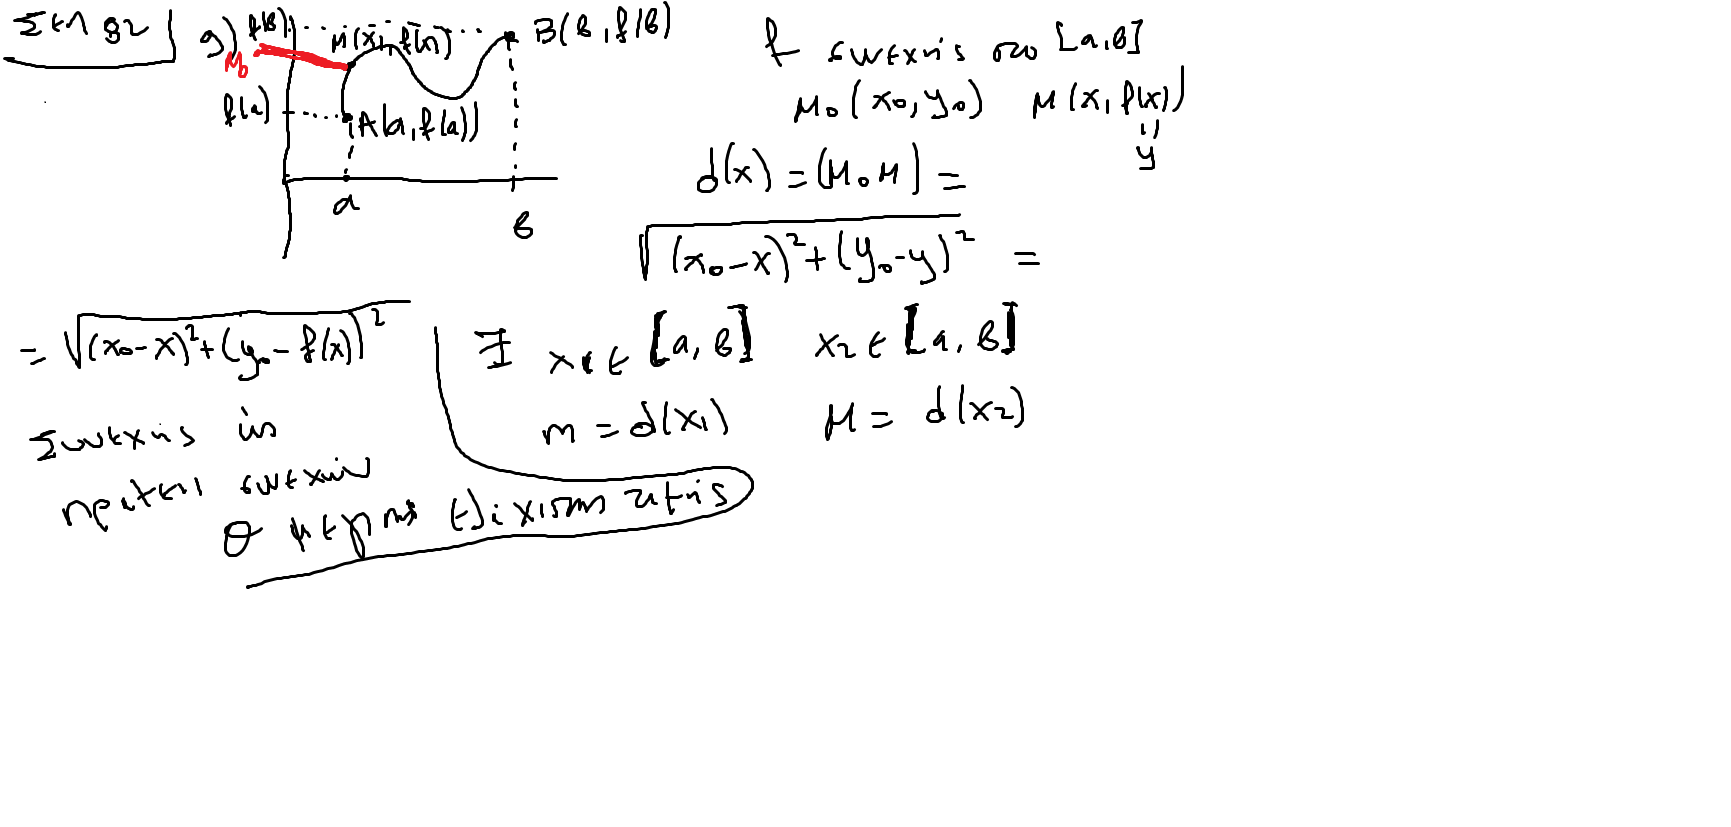 Σελ 82 9)
f(β) M(x, f(x)) B(β, f(β)
M₀
f(α) A(α, f(α))
α
β
f συνεχής στο [α,β]
M₀(x₀, y₀) M(x, f(x))
y
d(x) = (M₀M) =
√(x₀-x)²+(y₀-y)² =
= √(x₀-x)²+(y₀-f(x))²
Συνεχής ως
πράξεις συνεχών
∃ x₁ ∈ [α, β] x₂ ∈ [α, β]
m = d(x₁) M = d(x₂)
Θ μεγιστης ελάχιστης τιμής